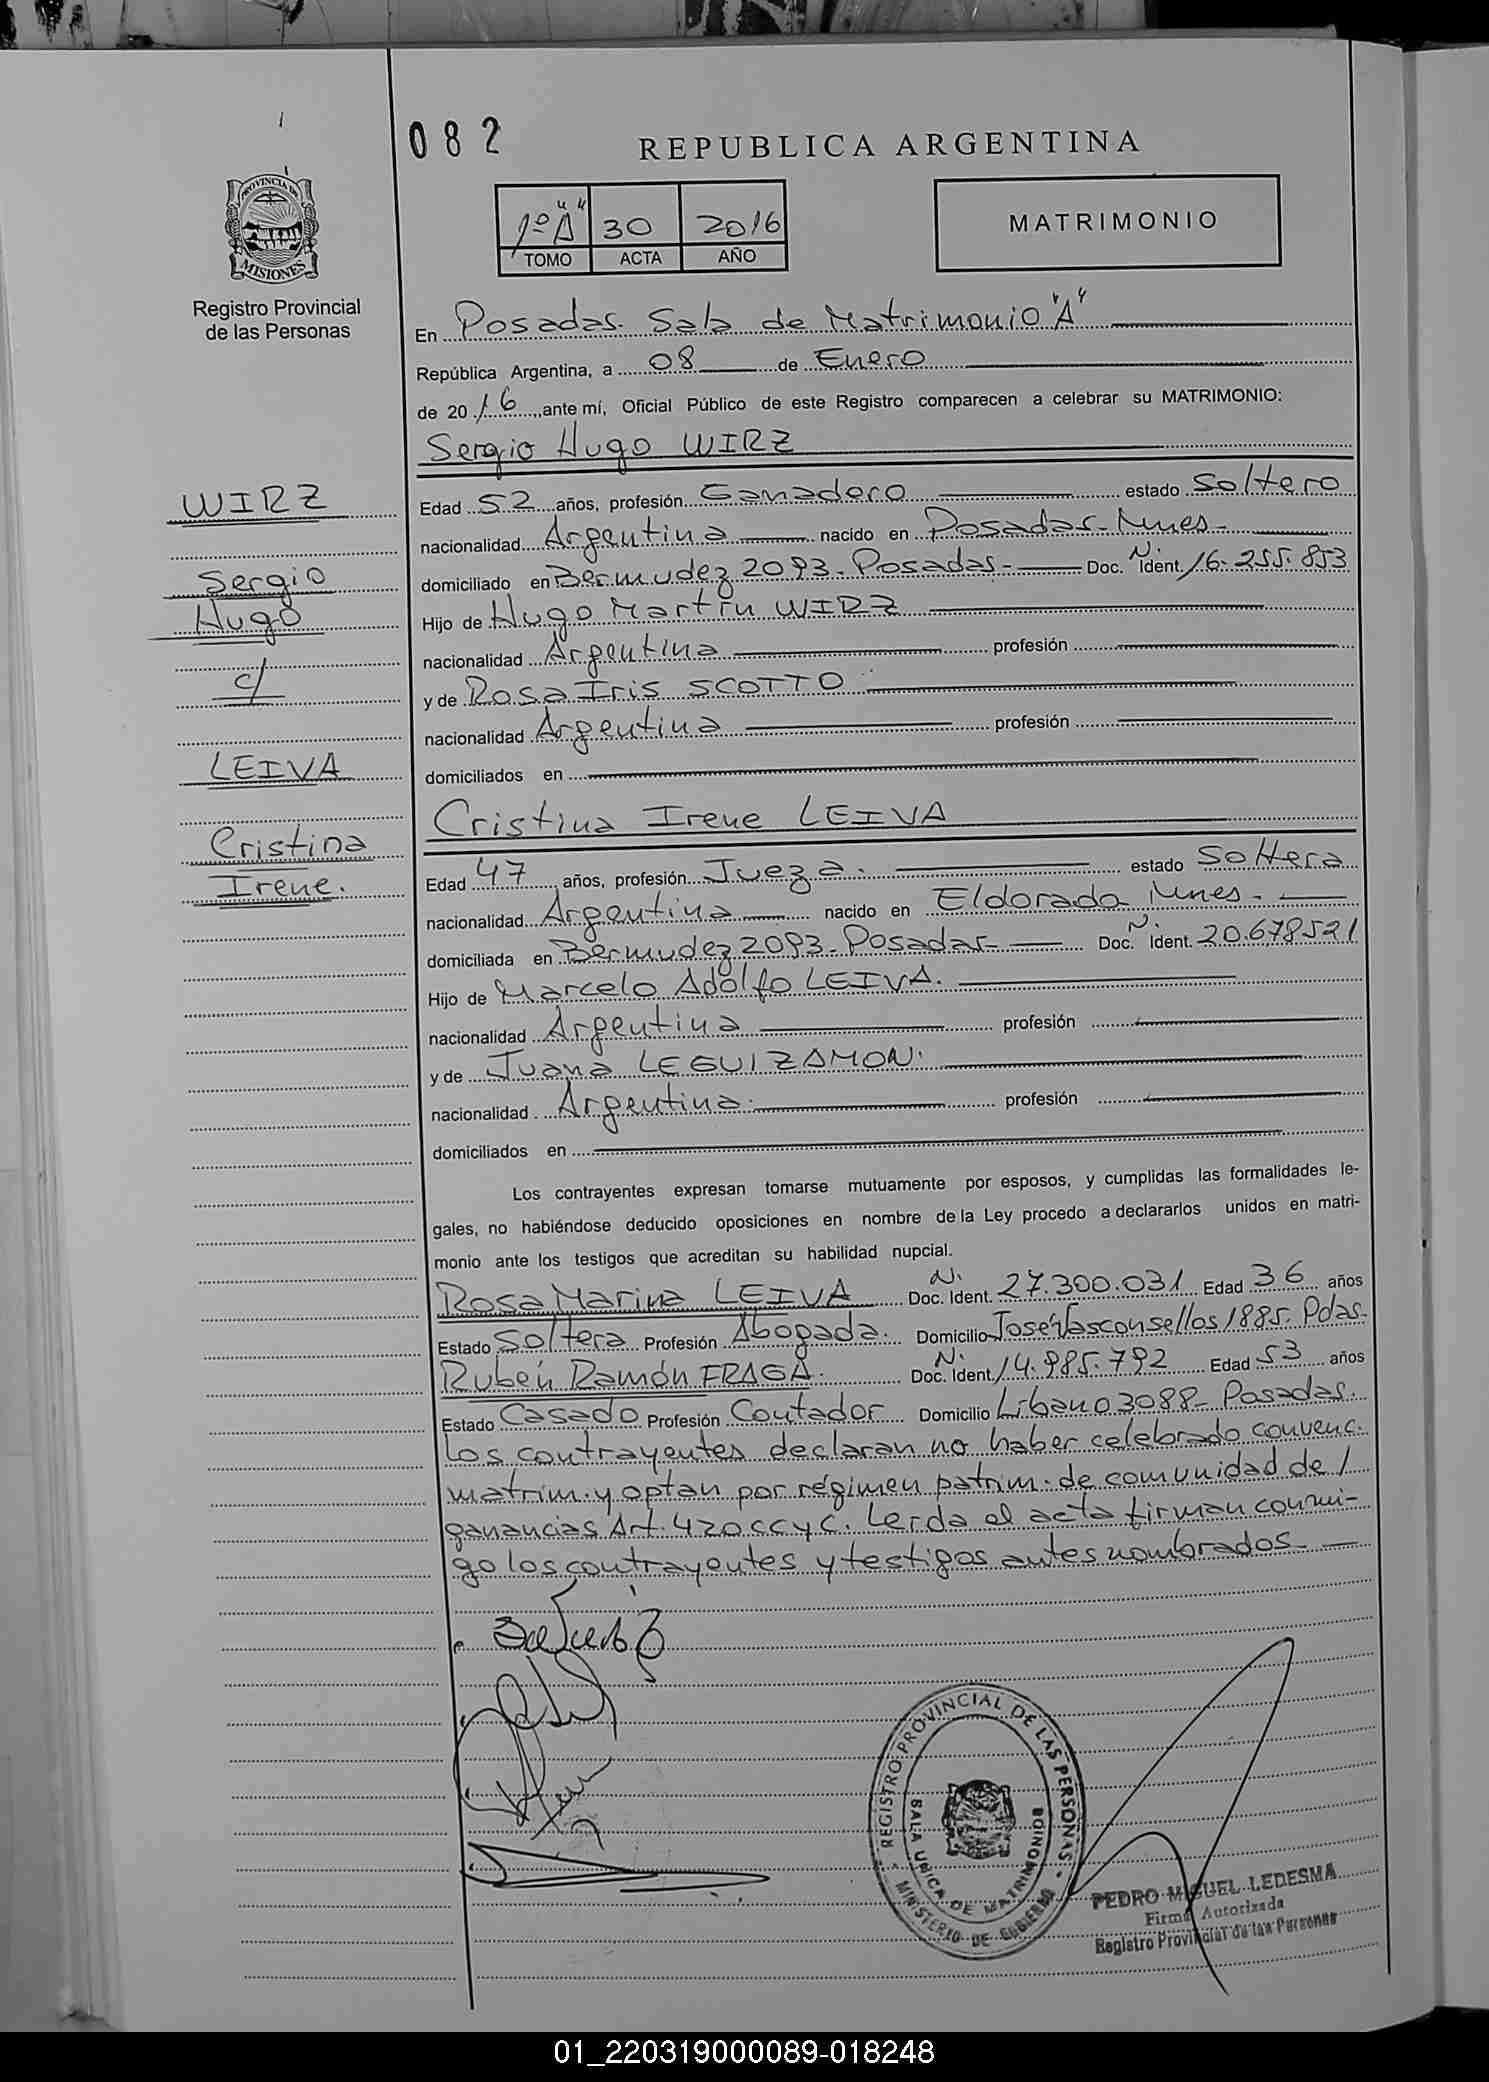 082
REPUBLICA ARGENTINA
PROVINCIA DE
MISIONES
Registro Provincial
de las Personas
1º "A" 30 2016
TOMO ACTA AÑO
MATRIMONIO
En Posadas. Sala de Matrimonio "A"
República Argentina, a 08 de Enero
de 2016, ante mí, Oficial Público de este Registro comparecen a celebrar su MATRIMONIO:
Sergio Hugo WIRZ
WIRZ
Sergio
Hugo
c/
LEIVA
Cristina
Irene.
Edad 52 años, profesión Ganadero estado Soltero
nacionalidad Argentina nacido en Posadas-Mnes-
domiciliado en Bermudez 2093-Posadas- Doc. N Ident. 16.255.853
Hijo de Hugo Martín WIRZ
nacionalidad Argentina profesión
y de Rosa Iris SCOTTO
nacionalidad Argentina profesión
domiciliados en
Cristina Irene LEIVA
Edad 47 años, profesión Jueza. estado Soltera
nacionalidad Argentina nacido en Eldorado Mnes-
domiciliada en Bermudez 2093-Posadas- Doc. N Ident. 20.678.521
Hijo de Marcelo Adolfo LEIVA.
nacionalidad Argentina profesión
y de Juana LEGUIZAMON.
nacionalidad Argentina. profesión
domiciliados en
Los contrayentes expresan tomarse mutuamente por esposos, y cumplidas las formalidades le-
gales, no habiéndose deducido oposiciones en nombre de la Ley procedo a declararlos unidos en matri-
monio ante los testigos que acreditan su habilidad nupcial.
Rosa Marina LEIVA Doc. N. Ident. 27.300.031 Edad 36 años
Estado Soltera Profesión Abogada. Domicilio José Vasconsellos 1885. Pdas.
Rubén Ramón FRAGA. Doc. N. Ident. 14.985.792 Edad 53 años
Estado Casado Profesión Contador Domicilio Líbano 3088-Posadas.
Los contrayentes declaran no haber celebrado convenc.
matrim. y optan por régimen patrim. de comunidad de /
ganancias Art. 420 CCyC. Leída el acta firman conmi-
go los contrayentes y testigos antes nombrados-
REGISTRO PROVINCIAL DE LAS PERSONAS
SALA UNICA DE MATRIMONIOS
MINISTERIO DE GOBIERNO
PEDRO MIGUEL LEDESMA
Firma Autorizada
Registro Provincial de las Personas
01_220319000089-018248